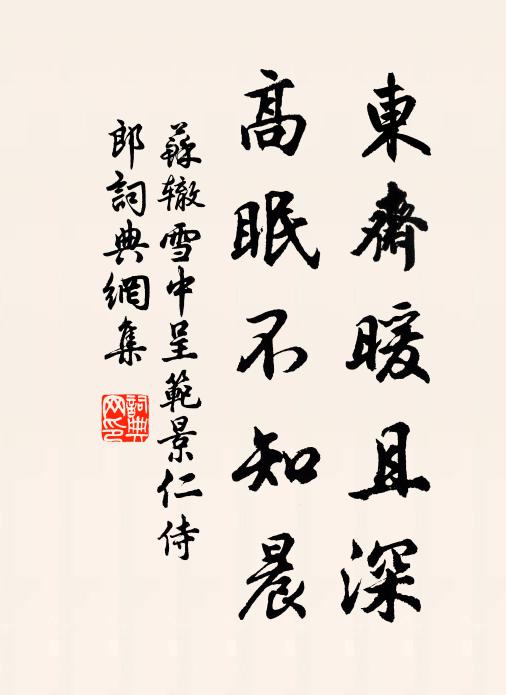 東齋暖且深
高眠不知晨
蘇辙雪中呈範景仁侍
郎詞典網集
詞典
网印